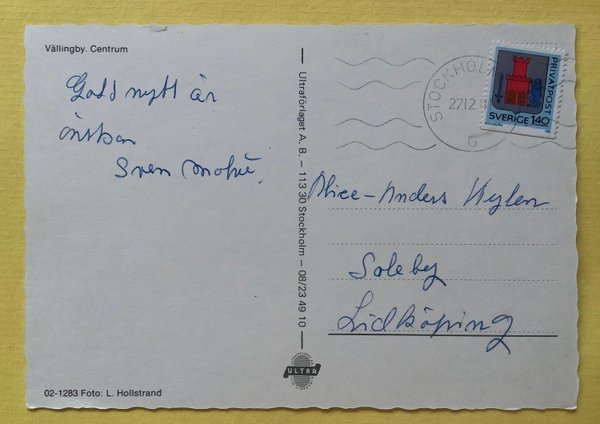 Vällingby. Centrum
Godd nytt år
önskar
Sven
Ultraförlaget A. B. – 113 30 Stockholm – 08/23 49 10
ULTRA
02-1283 Foto: L. Hollstrand
STOCKHOLM
27.12
PRIVATPOST
SVERIGE 140
Alice-Anders
Soleby
Lidköping